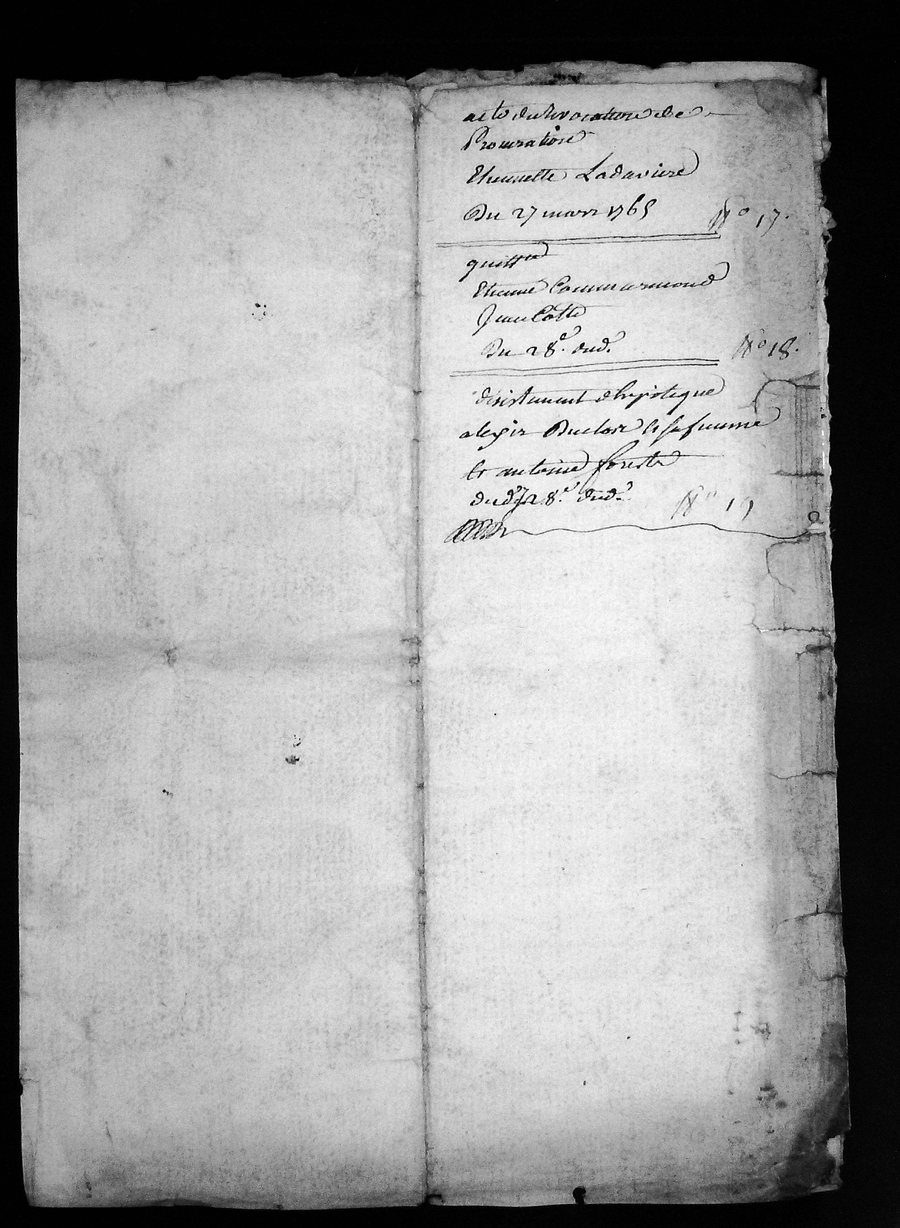 acte de revocation de
Procuration
Etiennette Ladaviere
Du 27 mars 1765 N.o 17.
quitt.ce
Etienne Commarmond
Jean Cotte
Du 28.e dud. N.o 18.
désistement d'hypoteque
Duclos et sa femme
et antoine foreste
dud. 28.e dud. N.o 19